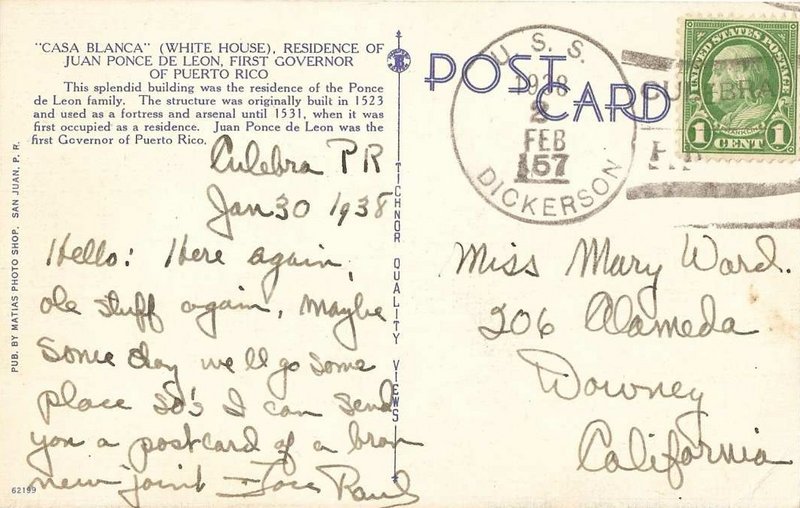 "CASA BLANCA" (WHITE HOUSE), RESIDENCE OF
JUAN PONCE DE LEON, FIRST GOVERNOR
OF PUERTO RICO
This splendid building was the residence of the Ponce
de Leon family. The structure was originally built in 1523
and used as a fortress and arsenal until 1531, when it was
first occupied as a residence. Juan Ponce de Leon was the
first Governor of Puerto Rico.
Culebra PR
Jan 30 1938
Hello: Here again,
ole stuff again, maybe
some day we'll go some
place so's I can send
you a postcard of a bran
new joint
PUB. BY MATIAS PHOTO SHOP, SAN JUAN, P. R.
62199
TICHNOR QUALITY VIEWS
POST
CARD
U. S. S.
1938
2
FEB
157
DICKERSON
CULEBRA
P.R.
UNITED STATES POSTAGE
FRANKLIN
1 1
CENT
Miss Mary Ward.
206 Alameda
Downey
California